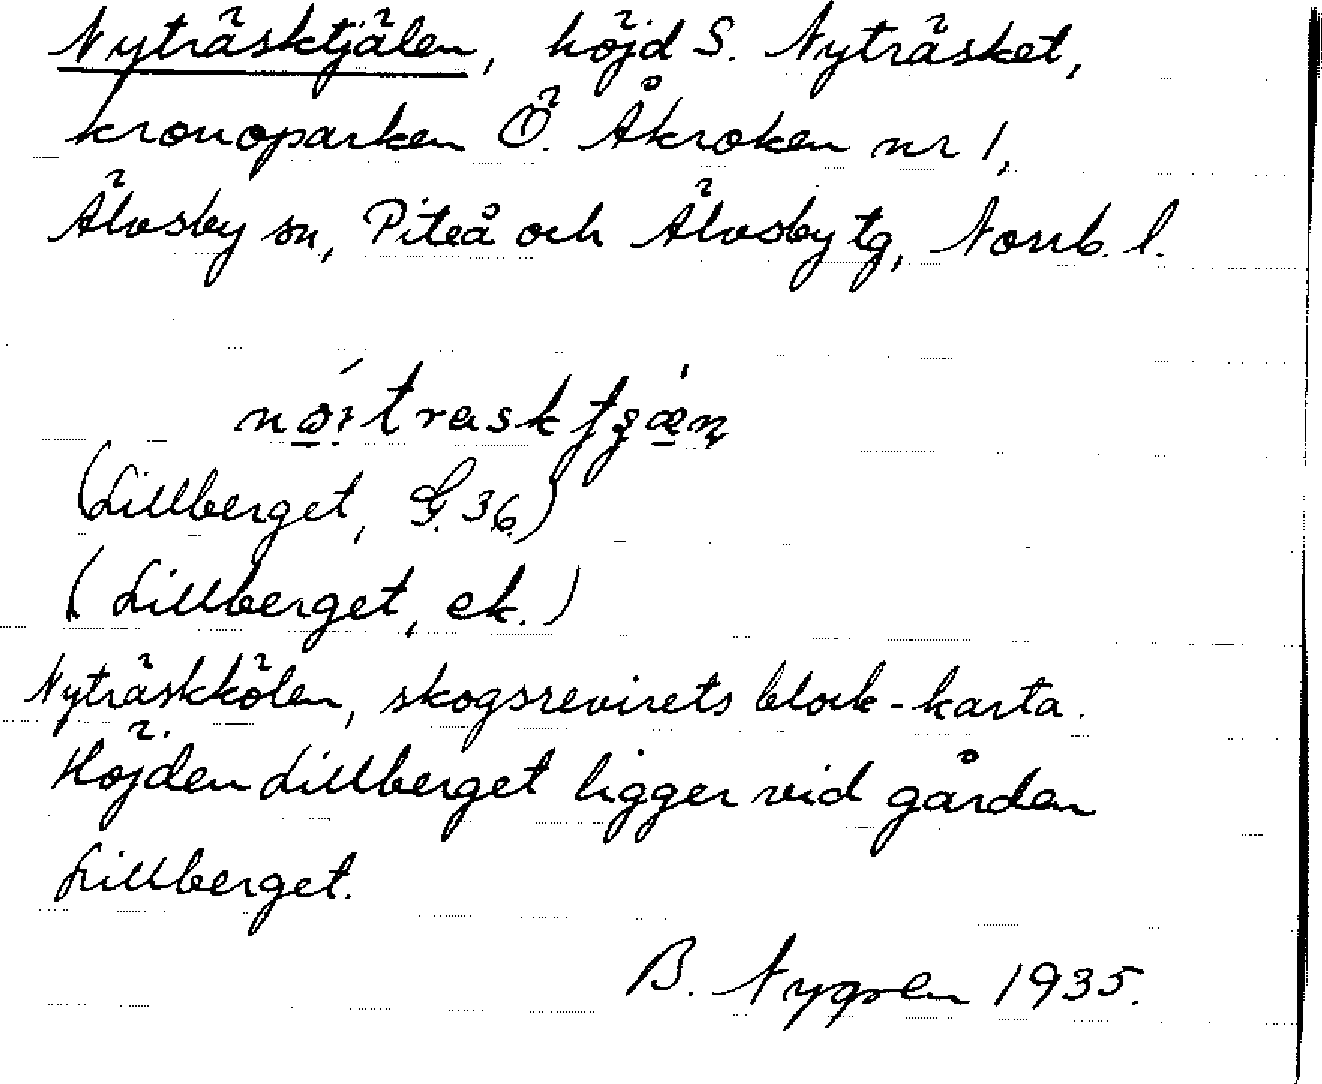 Nyträsktjälen, höjd S. Nyträsket,
kronoparken Ö. Åkroken nr 1,
Älvsby sn, Piteå och Älvsby tg, Norrb. l.
(Lillberget, G. 36.)
(Lillberget, ek.)
Nyträskkölen, skogsrevirets block-karta.
Höjden Lillberget ligger vid gården
Lillberget.
B. Nygren 1935.